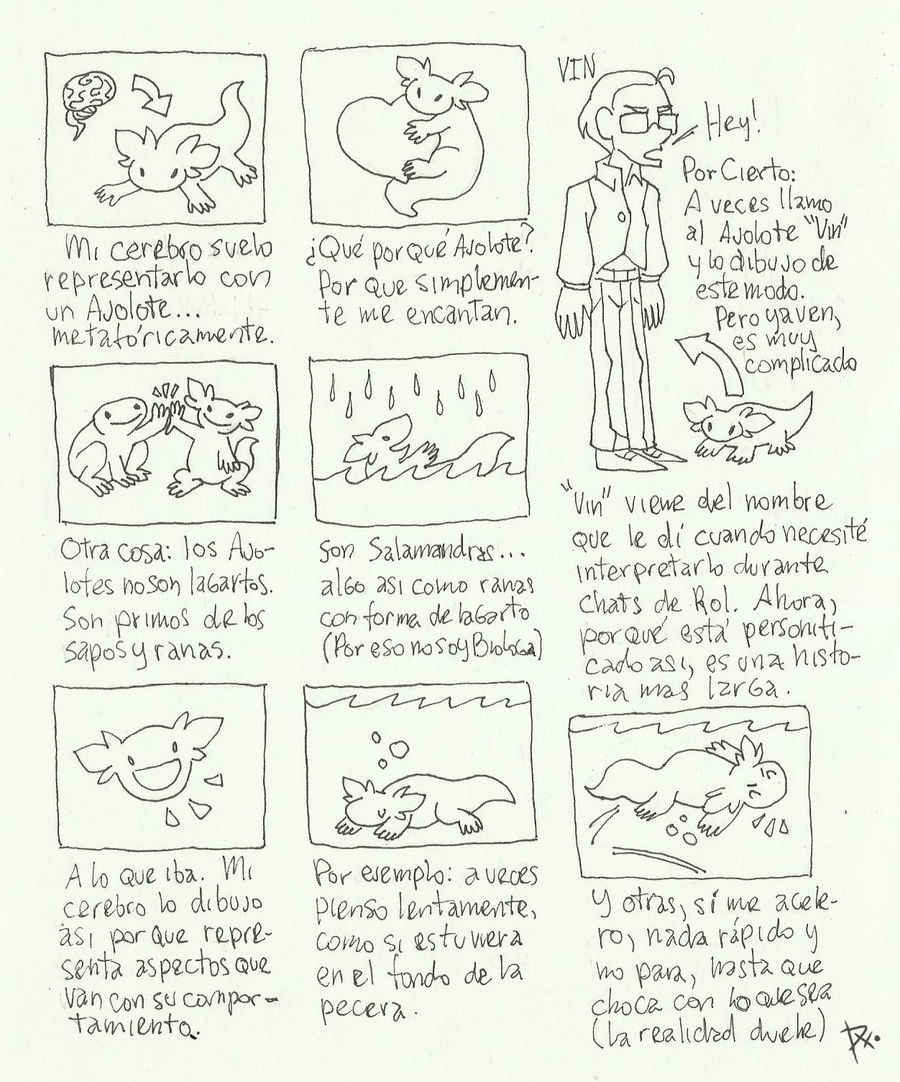 Mi cerebro suelo
representarlo con
un Ajolote...
metafóricamente.
¿Qué por qué Ajolote?
Por que simplemen-
te me encantan.
VIN
Hey!
Por Cierto:
A veces llamo
al Ajolote "Vin"
y lo dibujo de
este modo.
Pero ya ven,
es muy
complicado
Otra cosa: los Ajo-
lotes no son lagartos.
Son primos de los
sapos y ranas.
Son Salamandras...
algo asi como ranas
con forma de lagarto
(Por eso no soy Bióloga)
"Vin" viene del nombre
que le dí cuando necesité
interpretarlo durante
chats de Rol. Ahora,
por qué está personifi-
cado asi, es una histo-
ria mas larga.
A lo que iba. Mi
cerebro lo dibujo
asi por que repre-
senta aspectos que
van con su compor-
tamiento.
Por ejemplo: a veces
pienso lentamente,
como si estuviera
en el fondo de la
pecera.
Y otras, sí me acele-
ro, nada rápido y
no para, hasta que
choca con lo que sea
(la realidad duele)